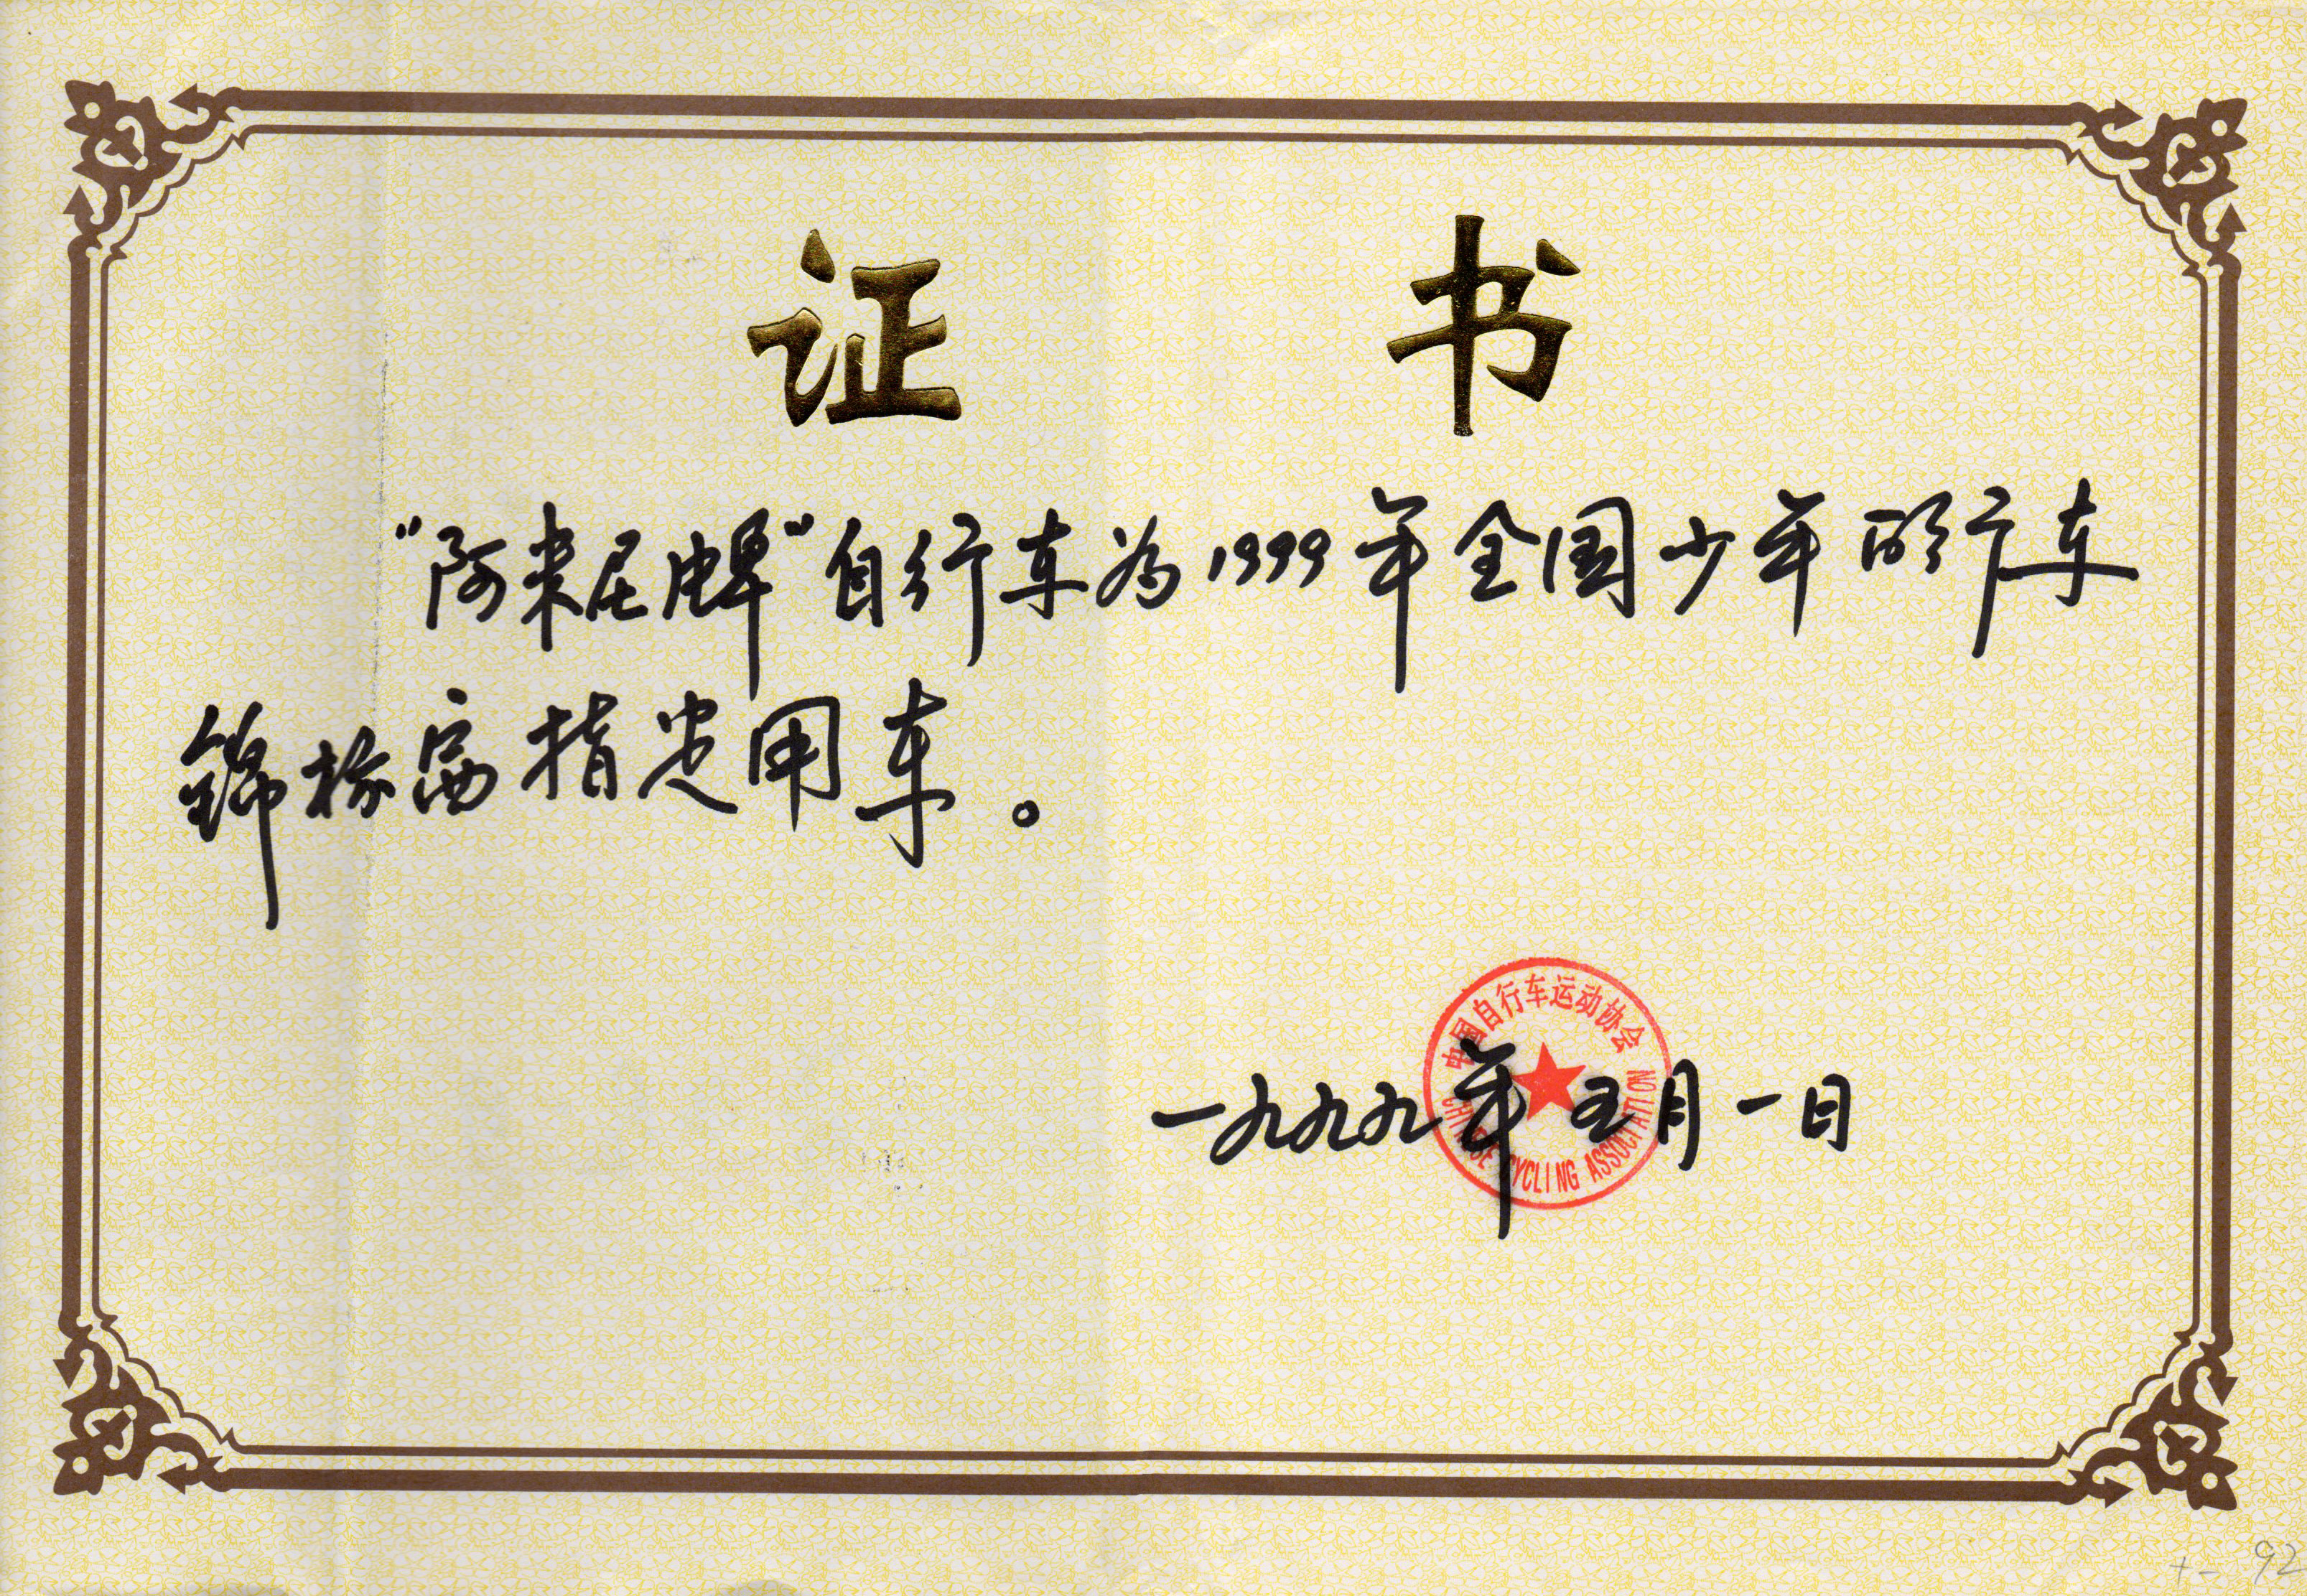 证 书
“阿米尼牌”自行车为1999年全国少年自行车
锦标赛指定用车。
中国自行车运动协会
一九九九年五月一日
CHINESE CYCLING ASSOCIATION
92